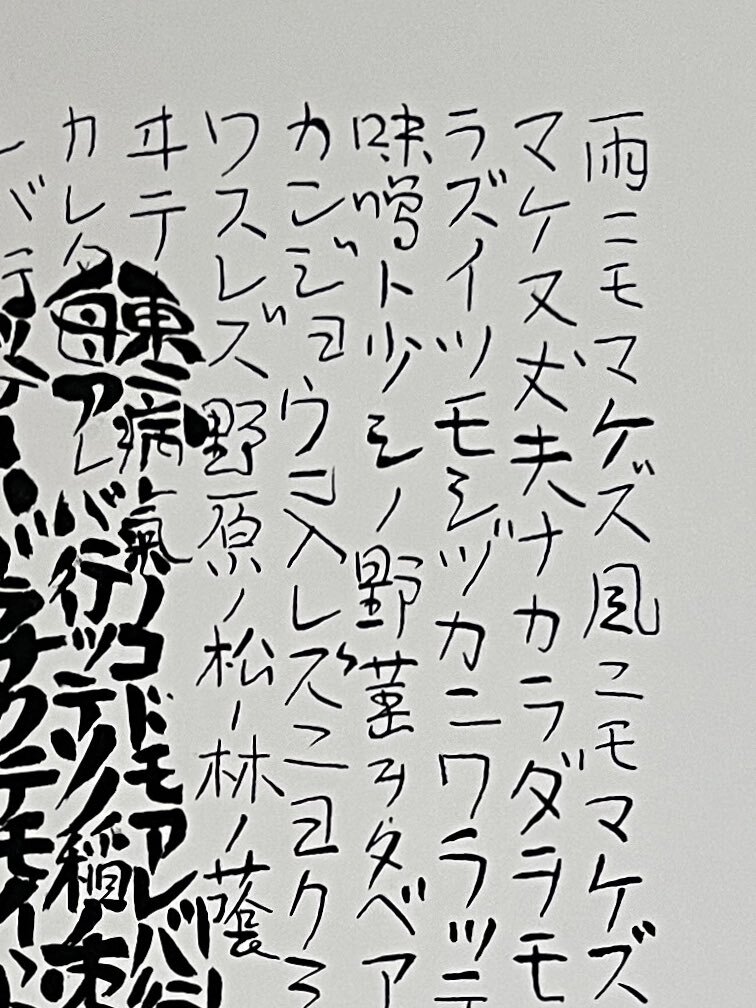 雨ニモマケズ風ニモマケズ
マケヌ丈夫ナカラダヲモ
ラズイツモシヅカニワラッテ
味噌ト少シノ野菜ヲタベア
カンジョウニ入レズニヨクミ
ワスレズ野原ノ松ノ林ノ蔭
ヰテ東ニ病氣ノコドモアレバ行
カレタ母アレバ行ッテソノ稲ノ束